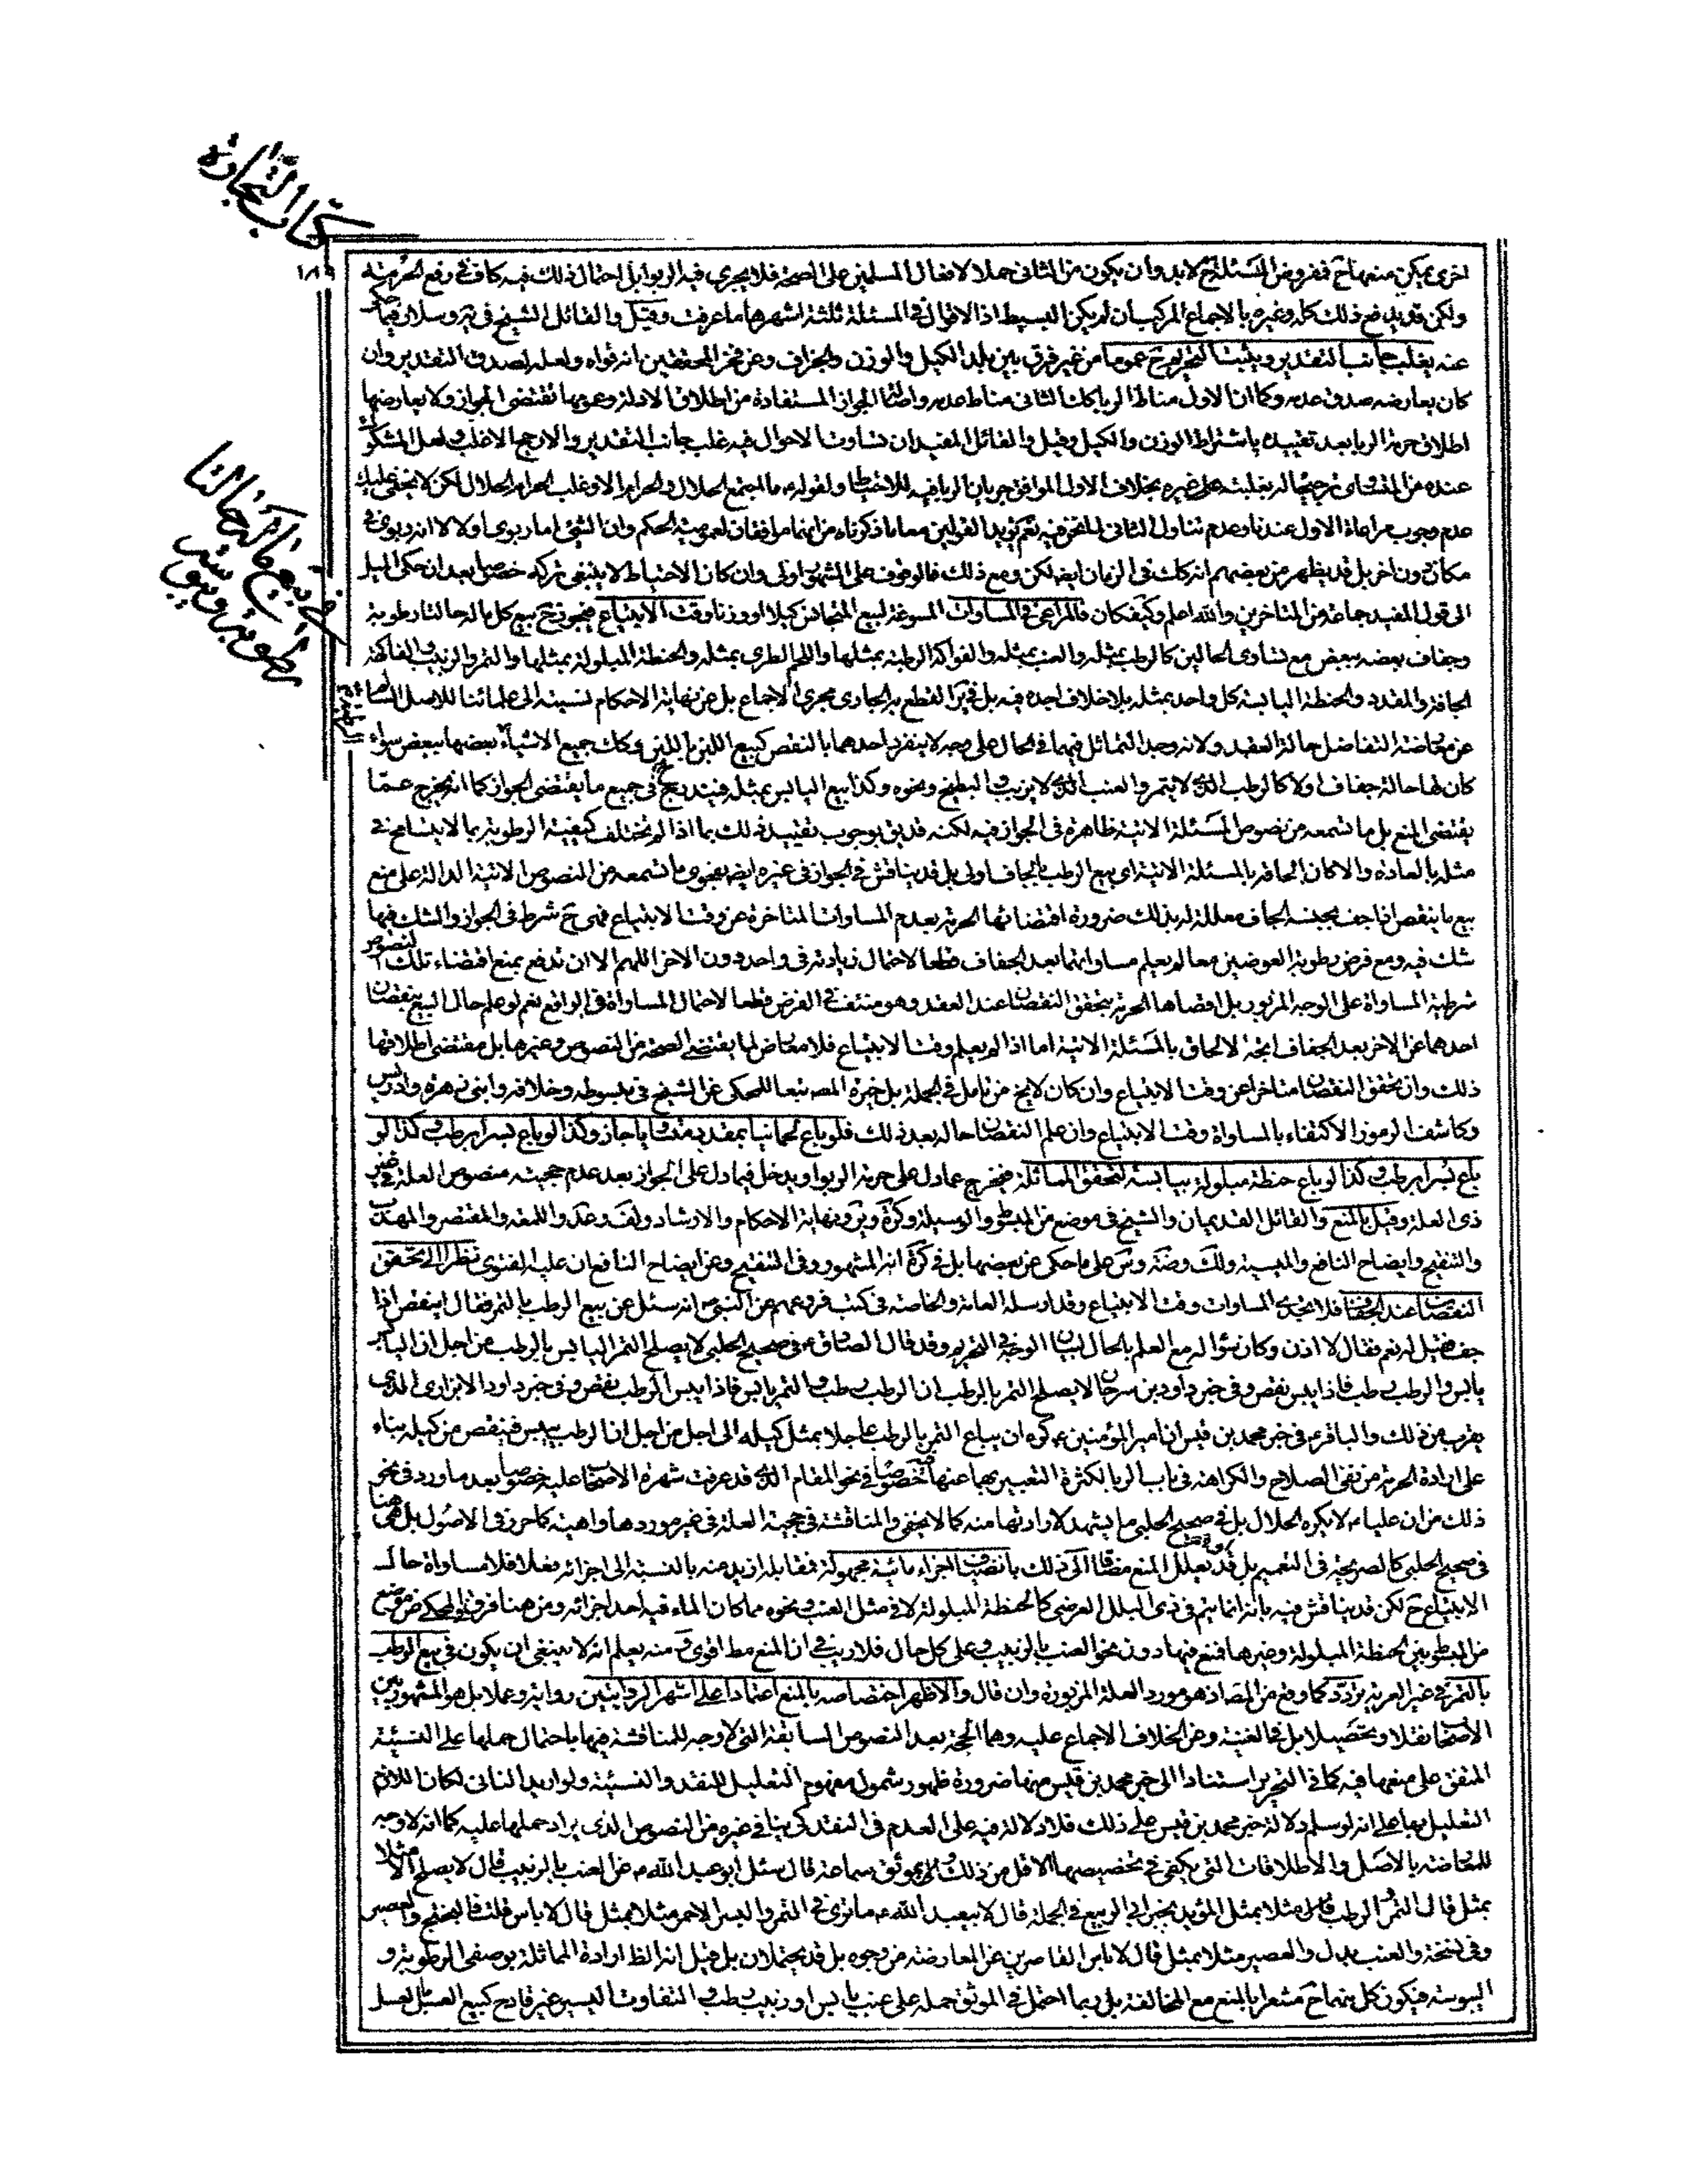 كتاب التجارة
١٨٩
اخرى يمكن منعها ح ففروض المسئلة ح لا بد وان يكون من الثانى حملا لافعال المسلمين على الصحة فلا يجرى فيه الربوا بل احتمال ذلك فيه كاف فى رفع الحرمة
ولكن قد يدفع ذلك كله وغيره بالاجماع المركب ان لم يكن البسيط اذ الاقوال فى المسئلة ثلثة اشهرها ما عرفت وقيل والقائل الشيخ فى ير وسلار فيما حكى
عنه يغلب جانب التقدير ويثبت التحريم ح عموما من غير فرق بين بلد الكيل والوزن والجزاف وعن فخر المحققين انه قواه ولعله لصدق التقدير وان
كان يعارضه صدق عدمه وكما ان الاول مناط الربا كك الثانى مناط عدمه واصالة الجواز المستفادة من اطلاق الادلة وعمومها تقتضى الجواز ولا يعارضها
اطلاق حرمة الربا بعد تقييده باشتراط الوزن والكيل وقيل والقائل المفيد ان تساوت الاحوال فيه غلب جانب التقدير والا رجح الاغلب ولعل المشكوك
عنده من المتساوى ترجيحا له بغلبته على غيره بخلاف الاول الموافق جريان الربا فيه للاحتياط ولقوله ما اجتمع الحلال والحرام الا وغلب الحرام الحلال لكن لا يخفى عليك
عدم وجوب مراعاة الاول عندنا وعدم تناول الثانى لما نحن فيه نعم يؤيد القولين معا ما ذكرناه من انهما موافقان لعمومية الحكم وان الشئ اما ربوى او لا لا انه ربوى فى
مكان دون اخر بل قد يظهر من بعضهم انه كك فى الزمان ايضا لكن ومع ذلك فالوقوف على المشهور اولى وان كان الاحتياط لا ينبغى تركه خصوصا بعد ان حكى الميل
الى قول المفيد جماعة من المتاخرين والله اعلم وكيف كان فالمراعى فى المساوات المسوغة لبيع المتجانسين كيلا او وزنا وقت الابتياع فيجوز ح بيع كل ماله حالتا رطوبة
فى بيع ما له حالتا رطوبة ويبوسة
وجفاف بعضه ببعض مع تساوى الحالين كالرطب بمثله والعنب بمثله والفواكه الرطبة بمثلها واللحم الطرى بمثله والحنطة المبلولة بمثلها والتمر والزبيب والفاكهة
الجافة والمقدد والحنطة اليابسة كل واحد بمثله بلا خلاف اجده فيه بل فى القطع به الجارى مجرى الاجماع بل عن نهاية الاحكام نسبته الى علمائنا للاصل السالم
عن معارضة التفاضل حالة العقد ولانه وجد التماثل فيهما فى الحال على وجه لا ينفرد احدهما بالنقص كبيع اللبن باللبن وكك جميع الاشياء بعضها ببعض سواء
كان لها حالة جفاف او لا كالرطب الذى لا يتمر والعنب الذى لا يزبب والبطيخ ونحوه وكذا بيع اليابس بمثله فيندرج ح فى جميع ما يقتضى الجواز كما انه يخرج عما
يقتضى المنع بل ما تسمعه من نصوص المسئلة الاتية ظاهرة فى الجواز فيه لكنه قد يق بوجوب تقييد ذلك بما اذا لم تختلف كيفية الرطوبة بما لا يتسامح فى
مثله بالعادة والا كان الحاقه بالمسئلة الاتية اى بيع الرطب بالجاف اولى بل قد يناقش فى الجواز فى غيره ايضا بفحوى ما تسمعه من النصوص الاتية الدالة على منع
بيع ما ينقص اذا جف بجنسه الجاف معللة له بذلك ضرورة اقتضائها الحرمة بعدم المساوات المتاخرة عن وقت الابتياع فهى ح شرط فى الجواز والشك فيها
شك فيه ومع فرض رطوبة العوضين معا لم يعلم مساواتهما بعد الجفاف قطعا لاحتمال زيادته فى واحد دون الاخر اللهم الا ان تدفع بمنع اقتضاء تلك النصوص
شرطية المساواة على الوجه المزبور بل اقصاها الحرمة بتحقق النقصان عند العقد وهو منتف فى الفرض قطعا لاحتمال المساواة فى الواقع نعم لو علم حال البيع بنقصان
احدهما عن الاخر بعد الجفاف اتجه الالحاق بالمسئلة الاتية اما اذا لم يعلم وقت الابتياع فلا معارض لما يقتضى الصحة من النصوص وغيرها بل مقتضى اطلاقها
ذلك وان تحقق النقصان متاخرا عن وقت الابتياع وان كان لا يخ من تامل فى الجملة بل خيرة المصنف تبعا للمحكى عن الشيخ فى مبسوطه وخلافه وابنى زهرة وادريس
وكاشف الرموز الاكتفاء بالمساواة وقت الابتياع وان علم النقصان حاله بعد ذلك فلو باع لحما نيا بمقدد متساويا جاز وكذا لو باع بسرا برطب وكذا لو
باع بسرا برطب وكذا لو باع حنطة مبلولة بيابسة لتحقق المماثلة فيخرج عما دل على حرمة الربوا ويدخل فيما دل على الجواز بعد عدم حجية منصوص العلة فى غير
ذى العلة وقيل بالمنع والقائل القديمان والشيخ فى موضع من المبسوط والوسيلة وكرة ويرو ونهاية الاحكام والارشاد ولف وعد واللمعة والمقتصر والمهذب
والتنقيح وايضاح النافع والميسية ولك وضة وس على ما حكى عن بعضها بل فى كرة انه المشهور وفى التنقيح وعن ايضاح النافع ان عليه الفتوى نظرا الى تحقق
النقصان عند الجفاف فلا تجدى المساوات وقت الابتياع وقد ارسله العامة والخاصة فى كتب فروعهم عن النبى ص انه سئل عن بيع الرطب بالتمر فقال اينقص اذا
جف فقيل له نعم فقال لا اذن وكان سؤاله مع العلم بالحال لبيان الوجه فى التحريم وقد قال الصادق ع فى صحيح الحلبى لا يصلح التمر اليابس بالرطب من اجل ان اليابس
يابس والرطب رطب فاذا يبس نقص وفى خبر داود بن سرحان لا يصلح التمر بالرطب ان الرطب رطب والتمر يابس فاذا يبس الرطب نقص وفى خبر داود الابزارى الذى
يقرب من ذلك والباقر ع فى خبر محمد بن قيس ان امير المؤمنين ع كره ان يباع التمر بالرطب عاجلا بمثل كيله الى اجل من اجل ان الرطب ييبس فينقص من كيله بناء
على ارادة الحرمة من نفى الصلاح والكراهة فى باب الربا لكثرة التعبير بهما عنها فيه خصوصا فى نحو المقام الذى قد عرفت شهرة الاصحاب عليه خصوصا بعد ما ورد فى نحو
ذلك من ان عليا ع لا يكره الحلال بل فى صحيح الحلبى ما يشهد لارادتها منه كما لا يخفى والمناقشة فى حجية العلة فى غير موردها واهية كما حرر فى الاصول بل هى هنا
فى صحيح الحلبى كالصريحة فى التعميم بل قد يعلل المنع مضافا الى ذلك بانضياف اجزاء مائية مجهولة فمقابله ازيد منه بالنسبة الى اجزائه فعلا فلا مساواة حال
الابتياع ح لكن قد يناقش فيه بانه انما يتم فى ذى البلل العرضى كالحنطة المبلولة لا فى مثل العنب ونحوه مما كان الماء فيه احد اجزائه ومن هنا فرق فى المحكى عن موضع
من المبسوط بين الحنطة المبلولة وغيرها فمنع فيها دون نحو العنب بالزبيب وعلى كل حال فلا ريب فى ان المنع مط اقوى و منه يعلم انه لا ينبغى ان يكون فى بيع الرطب
بالتمر فى غير العرية تردد كما وقع من المصنف اذ هو مورد العلة المزبورة وان قال والاظهر اختصاصه بالمنع اعتمادا على اشهر الروايتين رواية وعملا بل هو المشهور بين
الاصحاب نقلا وتحصيلا بل فى الغنية وعن الخلاف الاجماع عليه وهما الحجة بعد النصوص السابقة التى لا وجه للمناقشة فيها باحتمال حملها على النسيئة
المتفق على منعها فيه كما فى التحرير استنادا الى خبر محمد بن قيس منها ضرورة ظهور شمول مفهوم التعليل للنقد والنسيئة ولو اريد الثانى لكان اللازم
التعليل بها على انه لو سلم دلالة خبر محمد بن قيس على ذلك فلا دلالة فيه على العدم فى النقد كى ينافى غيره من النصوص الذى يراد حملها عليه كما انه لا وجه
للمعارضة بالاصل والاطلاقات التى يكفى فى تخصيصها الاقل من ذلك ولا بموثق سماعة قال سئل ابو عبد الله ع عن العنب بالزبيب قال لا يصلح الا مثلا
بمثل قال التمر والرطب مثلا بمثل المؤيد بخبر ابى الربيع فى الجملة قال لابيعبد الله ع ما ترى فى التمر والبسر الاحمر مثلا بمثل قال لا باس قلت فالبختج والعصير
وفى نسخة والعنب بدل والعصير مثلا بمثل قال لا باس القاصرين عن المعارضة من وجوه بل قد يحتملان بل قيل انه الظ ارادة المماثلة بوصفى الرطوبة و
اليبوسة فيكون كل منهما ح مشعرا بالمنع مع المخالفة بل ربما احتمل فى الموثق حمله على عنب يابس او زبيب رطب والتفاوت اليسير غير قادح كبيع العسل بالعسل